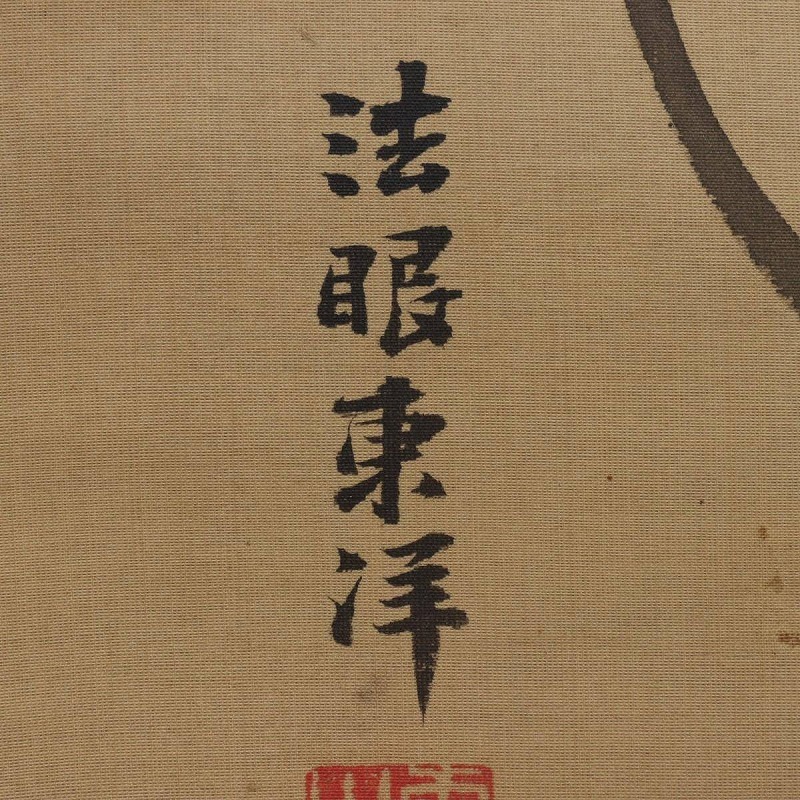 法眼東洋